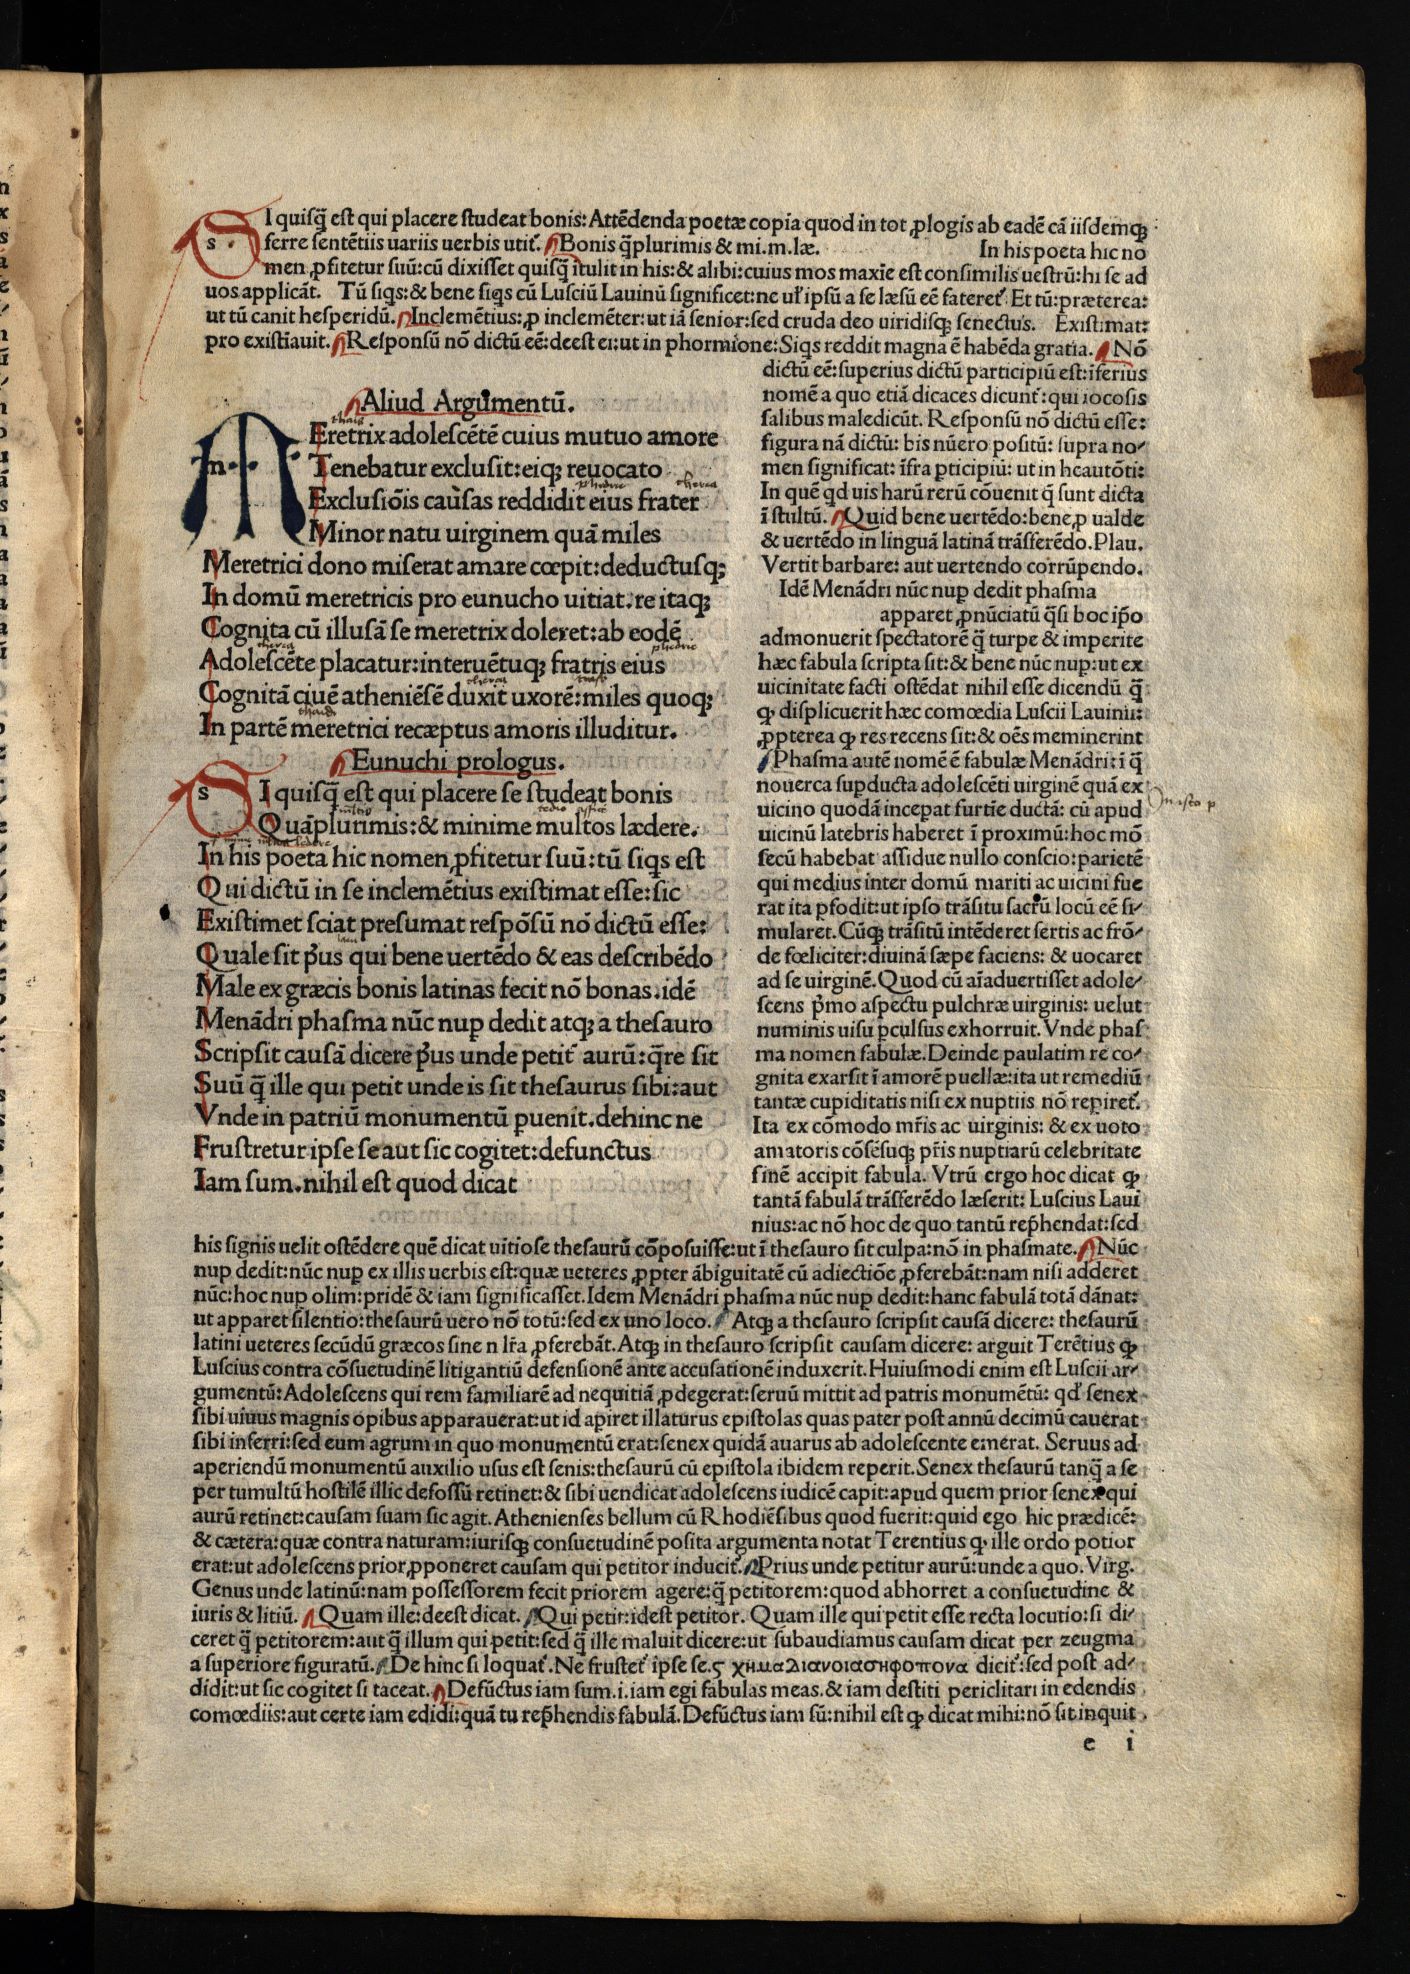 SI quiſq̃ eſt qui placere ſtudeat bonis: Attẽdenda poetæ copia quod in tot ꝓlogis ab eadẽ cã iiſdemqꝫ
ferre ſentẽtiis uariis uerbis utit᷑. Bonis q̃plurimis & mi.m.læ. In his poeta hic no
men ꝓfitetur ſuũ: cũ dixiſſet quiſq̃ ĩtulit in his: & alibi: cuius mos maxĩe eſt conſimilis ueſtrũ: hi ſe ad
uos applicãt. Tũ ſiqs: & bene ſiqs cũ Luſciũ Lauinũ ſignificet: ne ul̕ ipſũ a ſe læſũ eẽ fateret᷑. Et tũ: præterea:
ut tũ canit heſperidũ. Inclemẽtius: ꝓ inclemẽter: ut iã ſenior: ſed cruda deo uiridiſqꝫ ſenectus. Exiſtimat:
pro exiſtĩauit. Reſponſũ nõ dictũ eẽ: deeſt ei: ut in phormione: Siqs reddit magna ẽ habẽda gratia. Nõ
dictũ eẽ: ſuperius dictũ participiũ eſt: ĩferius
nomẽ a quo etiã dicaces dicunt᷑: qui iocoſis
ſalibus maledicũt. Reſponſũ nõ dictũ eſſe:
figura nã dictũ: bis nũero poſitũ: ſupra no-
men ſignificat: ĩfra ꝑticipiũ: ut in heautõti:
In quẽ qd uis harũ rerũ cõuenit q̃ ſunt dicta
ĩ ſtultũ. Quid bene uertẽdo: bene ꝓ ualde
& uertẽdo in linguã latinã trãſferẽdo. Plau.
Vertit barbare: aut uertendo corrũpendo.
Idẽ Menãdri nũc nuꝑ dedit phaſma
apparet ꝓnũciatũ q̃ſi hoc ip̃o
admonuerit ſpectatorẽ q̃ turpe & imperite
hæc fabula ſcripta ſit: & bene nũc nuꝑ: ut ex
uicinitate facti oſtẽdat nihil eſſe dicendũ q̃
ꝙ diſplicuerit hæc comœdia Luſcii Lauinii:
ꝓpterea ꝙ res recens ſit: & oẽs meminerint
Phaſma autẽ nomẽ ẽ fabulæ Menãdri: ĩ q̃
nouerca ſuꝑducta adoleſcẽti uirginẽ quã ex
uicino quodã inceꝑat furtĩe ductã: cũ apud
uicinũ latebris haberet ĩ proximũ: hoc mõ
ſecũ habebat aſſidue nullo conſcio: parietẽ
qui medius inter domũ mariti ac uicini fue
rat ita ꝑfodit: ut ipſo trãſitu ſacrũ locũ eẽ ſi-
mularet. Cũqꝫ trãſitũ intẽderet ſertis ac frõ-
de fœliciter: diuinã ſæpe faciens: & uocaret
ad ſe uirginẽ. Quod cũ aĩaduertiſſet adole-
ſcens p̃mo aſpectu pulchræ uirginis: uelut
numinis uiſu ꝑculſus exhorruit. Vnde phaſ
ma nomen fabulæ. Deinde paulatim re co-
gnita exarſit ĩ amorẽ puellæ: ita ut remediũ
tantæ cupiditatis niſi ex nuptiis nõ reꝑiret᷑.
Ita ex cõmodo mr̃is ac uirginis: & ex uoto
amatoris cõſẽſuqꝫ pr̃is nuptiarũ celebritate
finẽ accipit fabula. Vtrũ ergo hoc dicat ꝙ
tantã fabulã trãſferẽdo læſerit: Luſcius Laui
nius: ac nõ hoc de quo tantũ rep̃hendat: ſed
Aliud Argumentũ.
thais
MEretrix adoleſcẽtẽ cuius mutuo amore
Tenebatur excluſit: eiqꝫ reuocato
Excluſiõis cauſas reddidit eius frater
Minor natu uirginem quã miles
Meretrici dono miſerat amare cœpit: deductuſqꝫ
In domũ meretricis pro eunucho uitiat. re itaqꝫ
Cognita cũ illuſã ſe meretrix doleret: ab eodẽ
Adoleſcẽte placatur: interuẽtuqꝫ fratris eius
Cognitã ciuẽ atheniẽſẽ duxit uxorẽ: miles quoqꝫ
In partẽ meretrici recæptus amoris illuditur.
Eunuchi prologus.
SI quiſq̃ eſt qui placere ſe ſtudeat bonis
Quãplurimis: & minime multos lædere.
In his poeta hic nomen ꝓfitetur ſuũ: tũ ſiqs eſt
Qui dictũ in ſe inclemẽtius exiſtimat eſſe: ſic
Exiſtimet ſciat preſumat reſpõſũ nõ dictũ eſſe:
Quale ſit p̃us qui bene uertẽdo & eas deſcribẽdo
Male ex græcis bonis latinas fecit nõ bonas. idẽ
Menãdri phaſma nũc nuꝑ dedit atqꝫ a theſauro
Scripſit cauſã dicere p̃us unde petit᷑ aurũ: q̃re ſit
Suũ q̃ ille qui petit unde is ſit theſaurus ſibi: aut
Vnde in patriũ monumentũ ꝑuenit. dehinc ne
Fruſtretur ipſe ſe aut ſic cogitet: defunctus
Iam ſum. nihil eſt quod dicat
his ſignis uelit oſtẽdere quẽ dicat uitioſe theſaurũ cõpoſuiſſe: ut ĩ theſauro ſit culpa: nõ in phaſmate. Nũc
nuꝑ dedit: nũc nuꝑ ex illis uerbis eſt: quæ ueteres ꝓpter ãbiguitatẽ cũ adiectiõe ꝓferebãt: nam niſi adderet
nũc: hoc nuꝑ olim: pridẽ & iam ſignificaſſet. Idem Menãdri phaſma nũc nuꝑ dedit: hanc fabulã totã dãnat:
ut apparet ſilentio: theſaurũ uero nõ totũ: ſed ex uno loco. Atqꝫ a theſauro ſcripſit cauſã dicere: theſaurũ
latini ueteres ſecũdũ græcos ſine n lr̃a ꝓferebãt. Atqꝫ in theſauro ſcripſit cauſam dicere: arguit Terẽtius ꝙ
Luſcius contra cõſuetudinẽ litigantiũ defenſionẽ ante accuſationẽ induxerit. Huiuſmodi enim eſt Luſcii ar-
gumentũ: Adoleſcens qui rem familiarẽ ad nequitiã ꝓdegerat: ſeruũ mittit ad patris monumẽtũ: qd̕ ſenex
ſibi uiuus magnis opibus apparauerat: ut id aꝑiret illaturus epiſtolas quas pater poſt annũ decimũ cauerat
ſibi inferri: ſed eum agrum in quo monumentũ erat: ſenex quidã auarus ab adoleſcente emerat. Seruus ad
aperiendũ monumentũ auxilio uſus eſt ſenis: theſaurũ cũ epiſtola ibidem reperit. Senex theſaurũ tanq̃ a ſe
per tumultũ hoſtilẽ illic defoſſũ retinet: & ſibi uendicat adoleſcens iudicẽ capit: apud quem prior ſenex qui
aurũ retinet: cauſam ſuam ſic agit. Athenienſes bellum cũ Rhodiẽſibus quod fuerit: quid ego hic prædicẽ:
& cætera: quæ contra naturam: iuriſqꝫ conſuetudinẽ poſita argumenta notat Terentius ꝙ ille ordo potior
erat: ut adoleſcens prior ꝓponeret cauſam qui petitor inducit᷑. Prius unde petitur aurũ: unde a quo. Virg.
Genus unde latinũ: nam poſſeſſorem fecit priorem agere: q̃ petitorem: quod abhorret a conſuetudine &
iuris & litiũ. Quam ille: deeſt dicat. Qui petit: ideſt petitor. Quam ille qui petit eſſe recta locutio: ſi di-
ceret q̃ petitorem: aut q̃ illum qui petit: ſed q̃ ille maluit dicere: ut ſubaudiamus cauſam dicat per zeugma
a ſuperiore figuratũ. De hinc ſi loquat᷑. Ne fruſtet᷑ ipſe ſe. ς χημαδιανοιασηφοπονα dicit᷑: ſed poſt ad-
didit: ut ſic cogitet ſi taceat. Defũctus iam ſum. i. iam egi fabulas meas. & iam deſtiti periclitari in edendis
comœdiis: aut certe iam edidi: quã tu rep̃hendis fabulã. Defũctus iam ſũ: nihil eſt ꝙ dicat mihi: nõ ſit inquit
e i